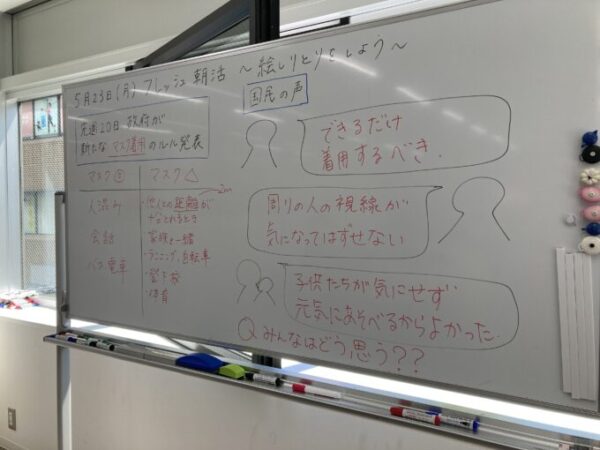 5月23日(月) フレッシュ朝活 ～絵しりとりをしよう～
先週20日政府が
新たなマスク着用のルール発表
国民の声
できるだけ
着用するべき.
周りの人の視線が
気になってはずせない
子供たちが気にせず
元気にあそべるからよかった.
Q みんなはどう思う??
マスク○
人混み
会話
バス電車
マスク△
2m
・他人との距離が
十分とれるとき
家族と一緒
・ランニング、自転車
・登下校
・体育